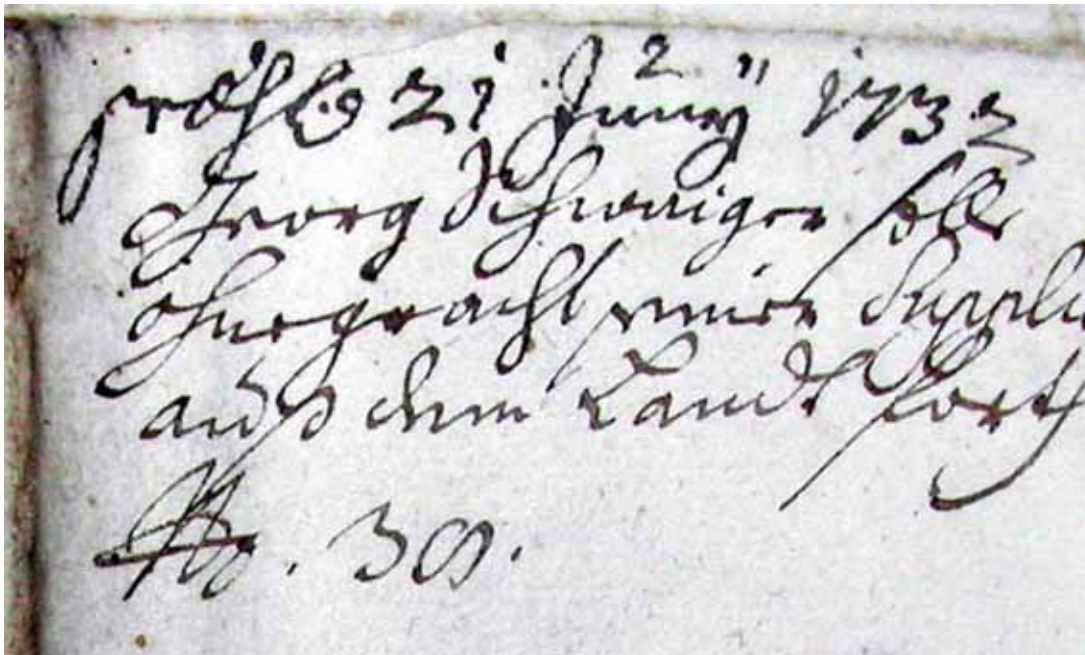 21 Junÿ 1732
Georg Schwaiger solle
ohngeacht seines Supplic
auß dem Landt forth
No. 30.